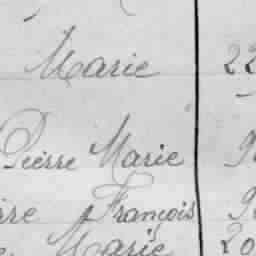 Marie 22
Pierre Marie
rre François
Marie 20